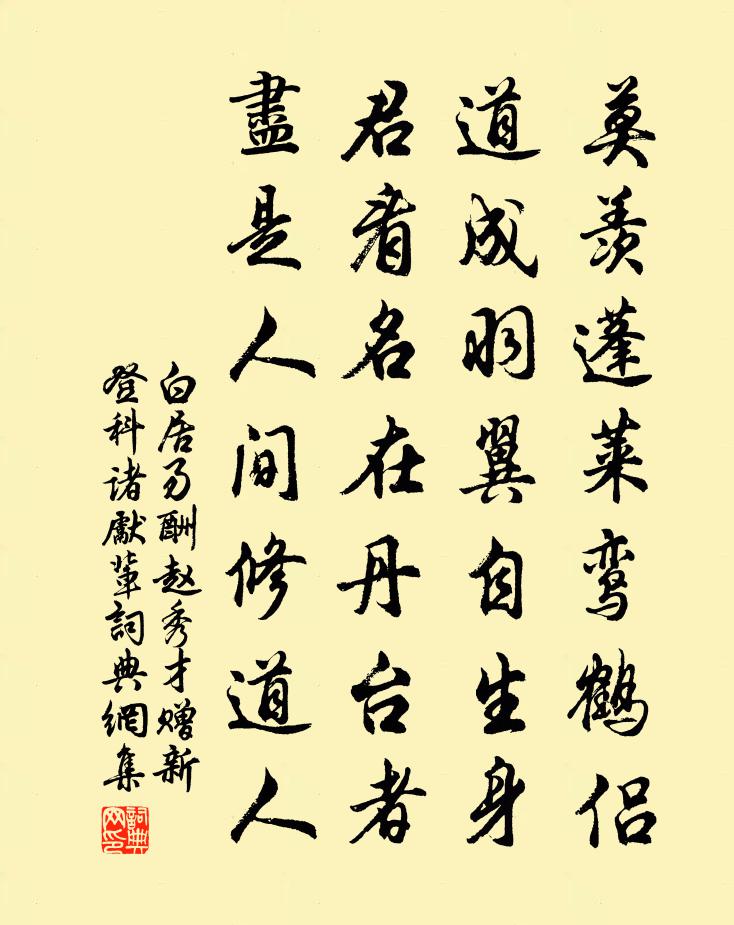 莫羡蓬莱鸾鹤侣
道成羽翼自生身
君看名在丹台者
盡是人间修道人
白居易酬赵秀才赠新
登科诸獻輩詞典網集
詞典
网印